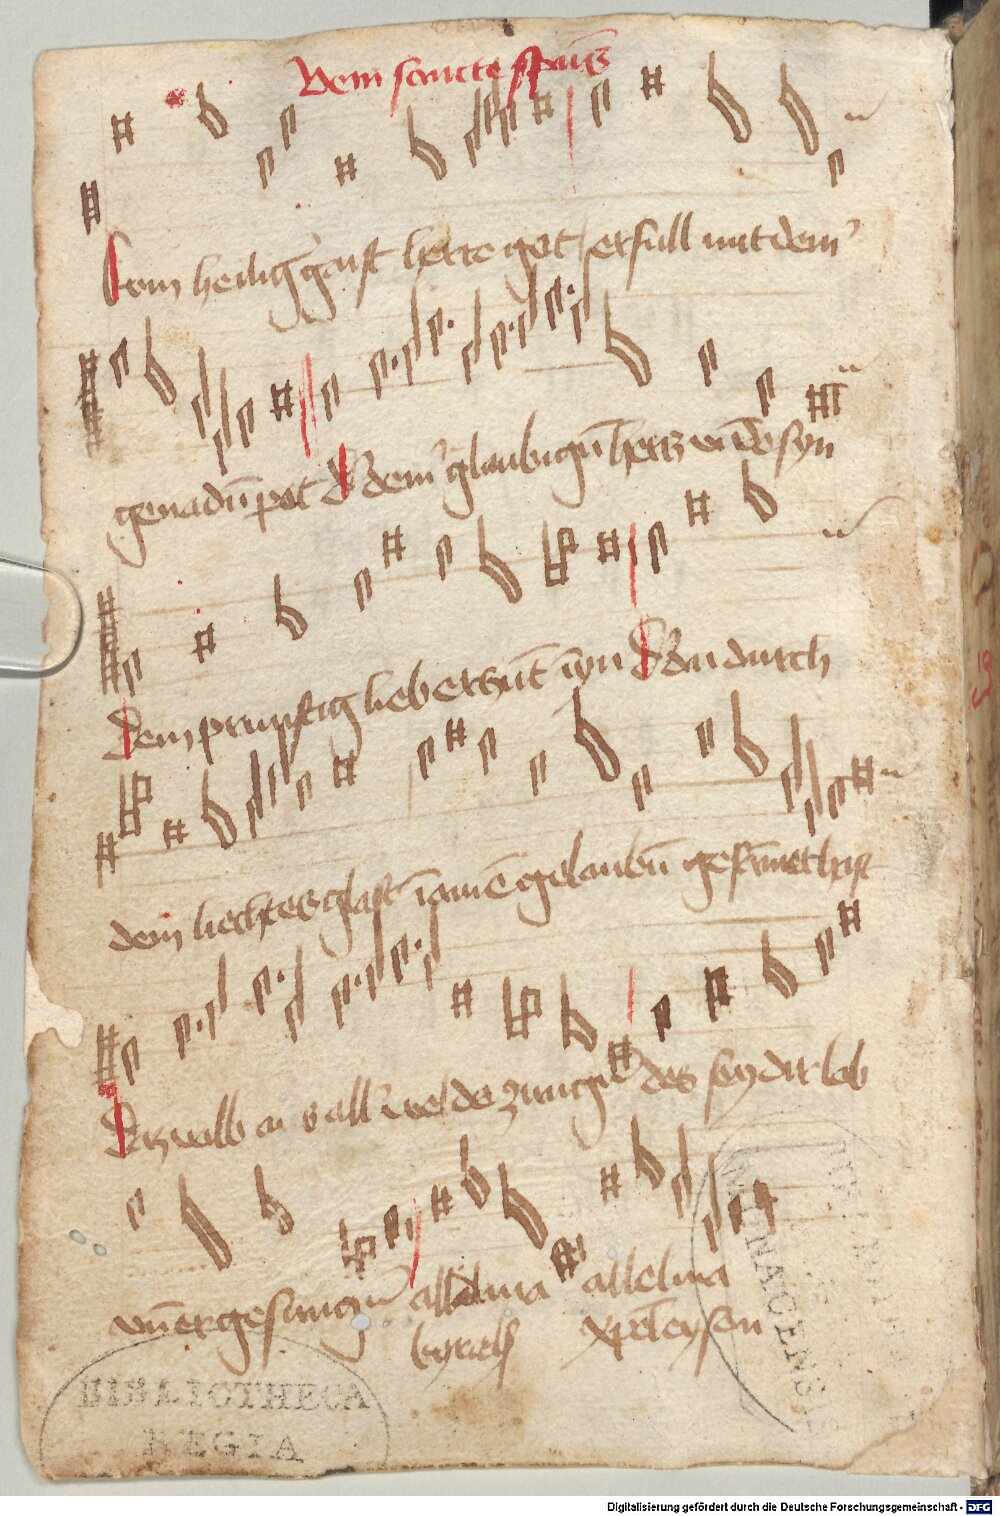 Veni sancte spūs
Kom heilig' geist herre got erfull mit dein'
genadn̄ pot Dein' glaubign̄ hertz vn̄ de syn
Dein prunstig lieb erzūt īn yn Der durch
dein liechtes glast ī ainē gelaubn̄ gesāmet hast
Daz volk aus all' welde zungn̄ des sey dir lob
vn̄ er gesungn̄ alleluia alleluia
kyriels xp̄eleyson
BIBLIOTHECA
REGIA
MONACENSIS
Digitalisierung gefördert durch die Deutsche Forschungsgemeinschaft - DFG